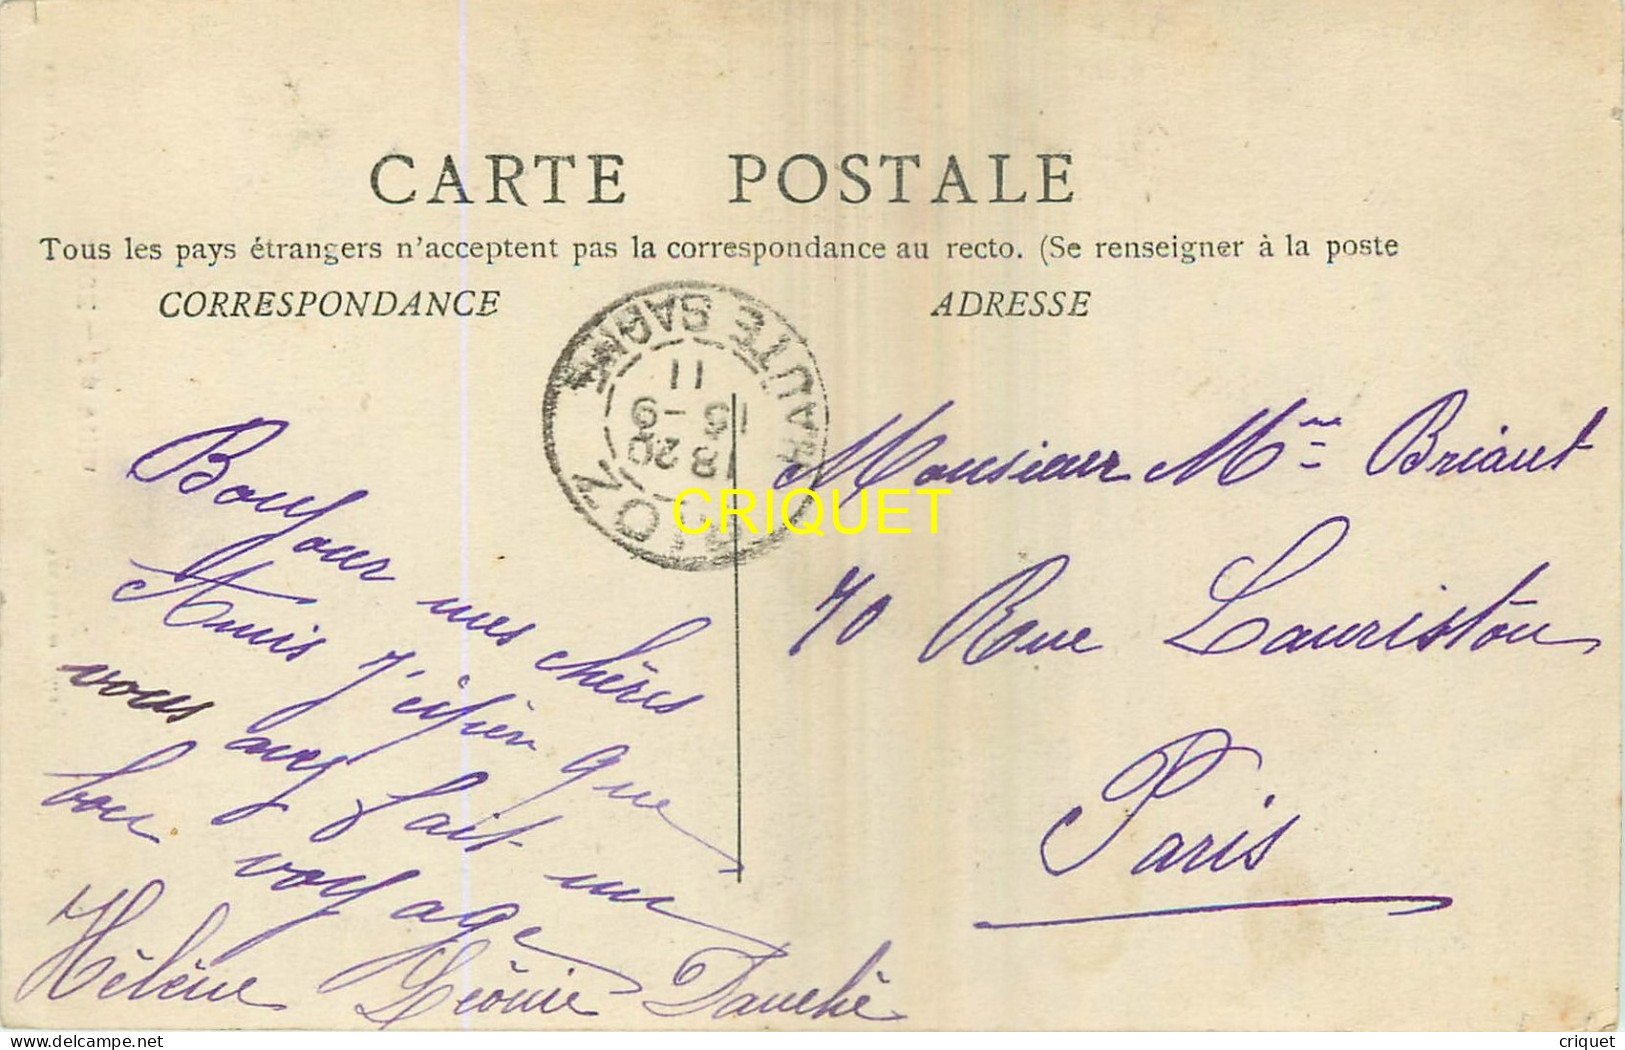 CARTE POSTALE
Tous les pays étrangers n'acceptent pas la correspondance au recto. (Se renseigner à la poste
CORRESPONDANCE
ADRESSE
HAUTE SAONE
11
15 -9
18 20
RIOZ
CRIQUET
Monsieur Mme Briant
70 Rue Lauriston
Paris
Bonjour mes chères
Amis J'éspèr que
vous avez fait un
bon voyage
Hélène Léonie Dauché
delcampe.net
criquet